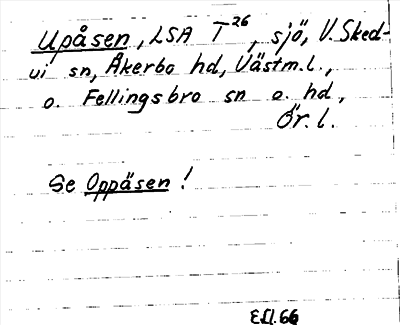 Upåsen, LSA T26, sjö, V. Sked-
vi sn, Åkerbo hd, Västm.l.,
o. Fellingsbro sn o. hd,
Ör. l.
Se Oppåsen!
E.Ll.66